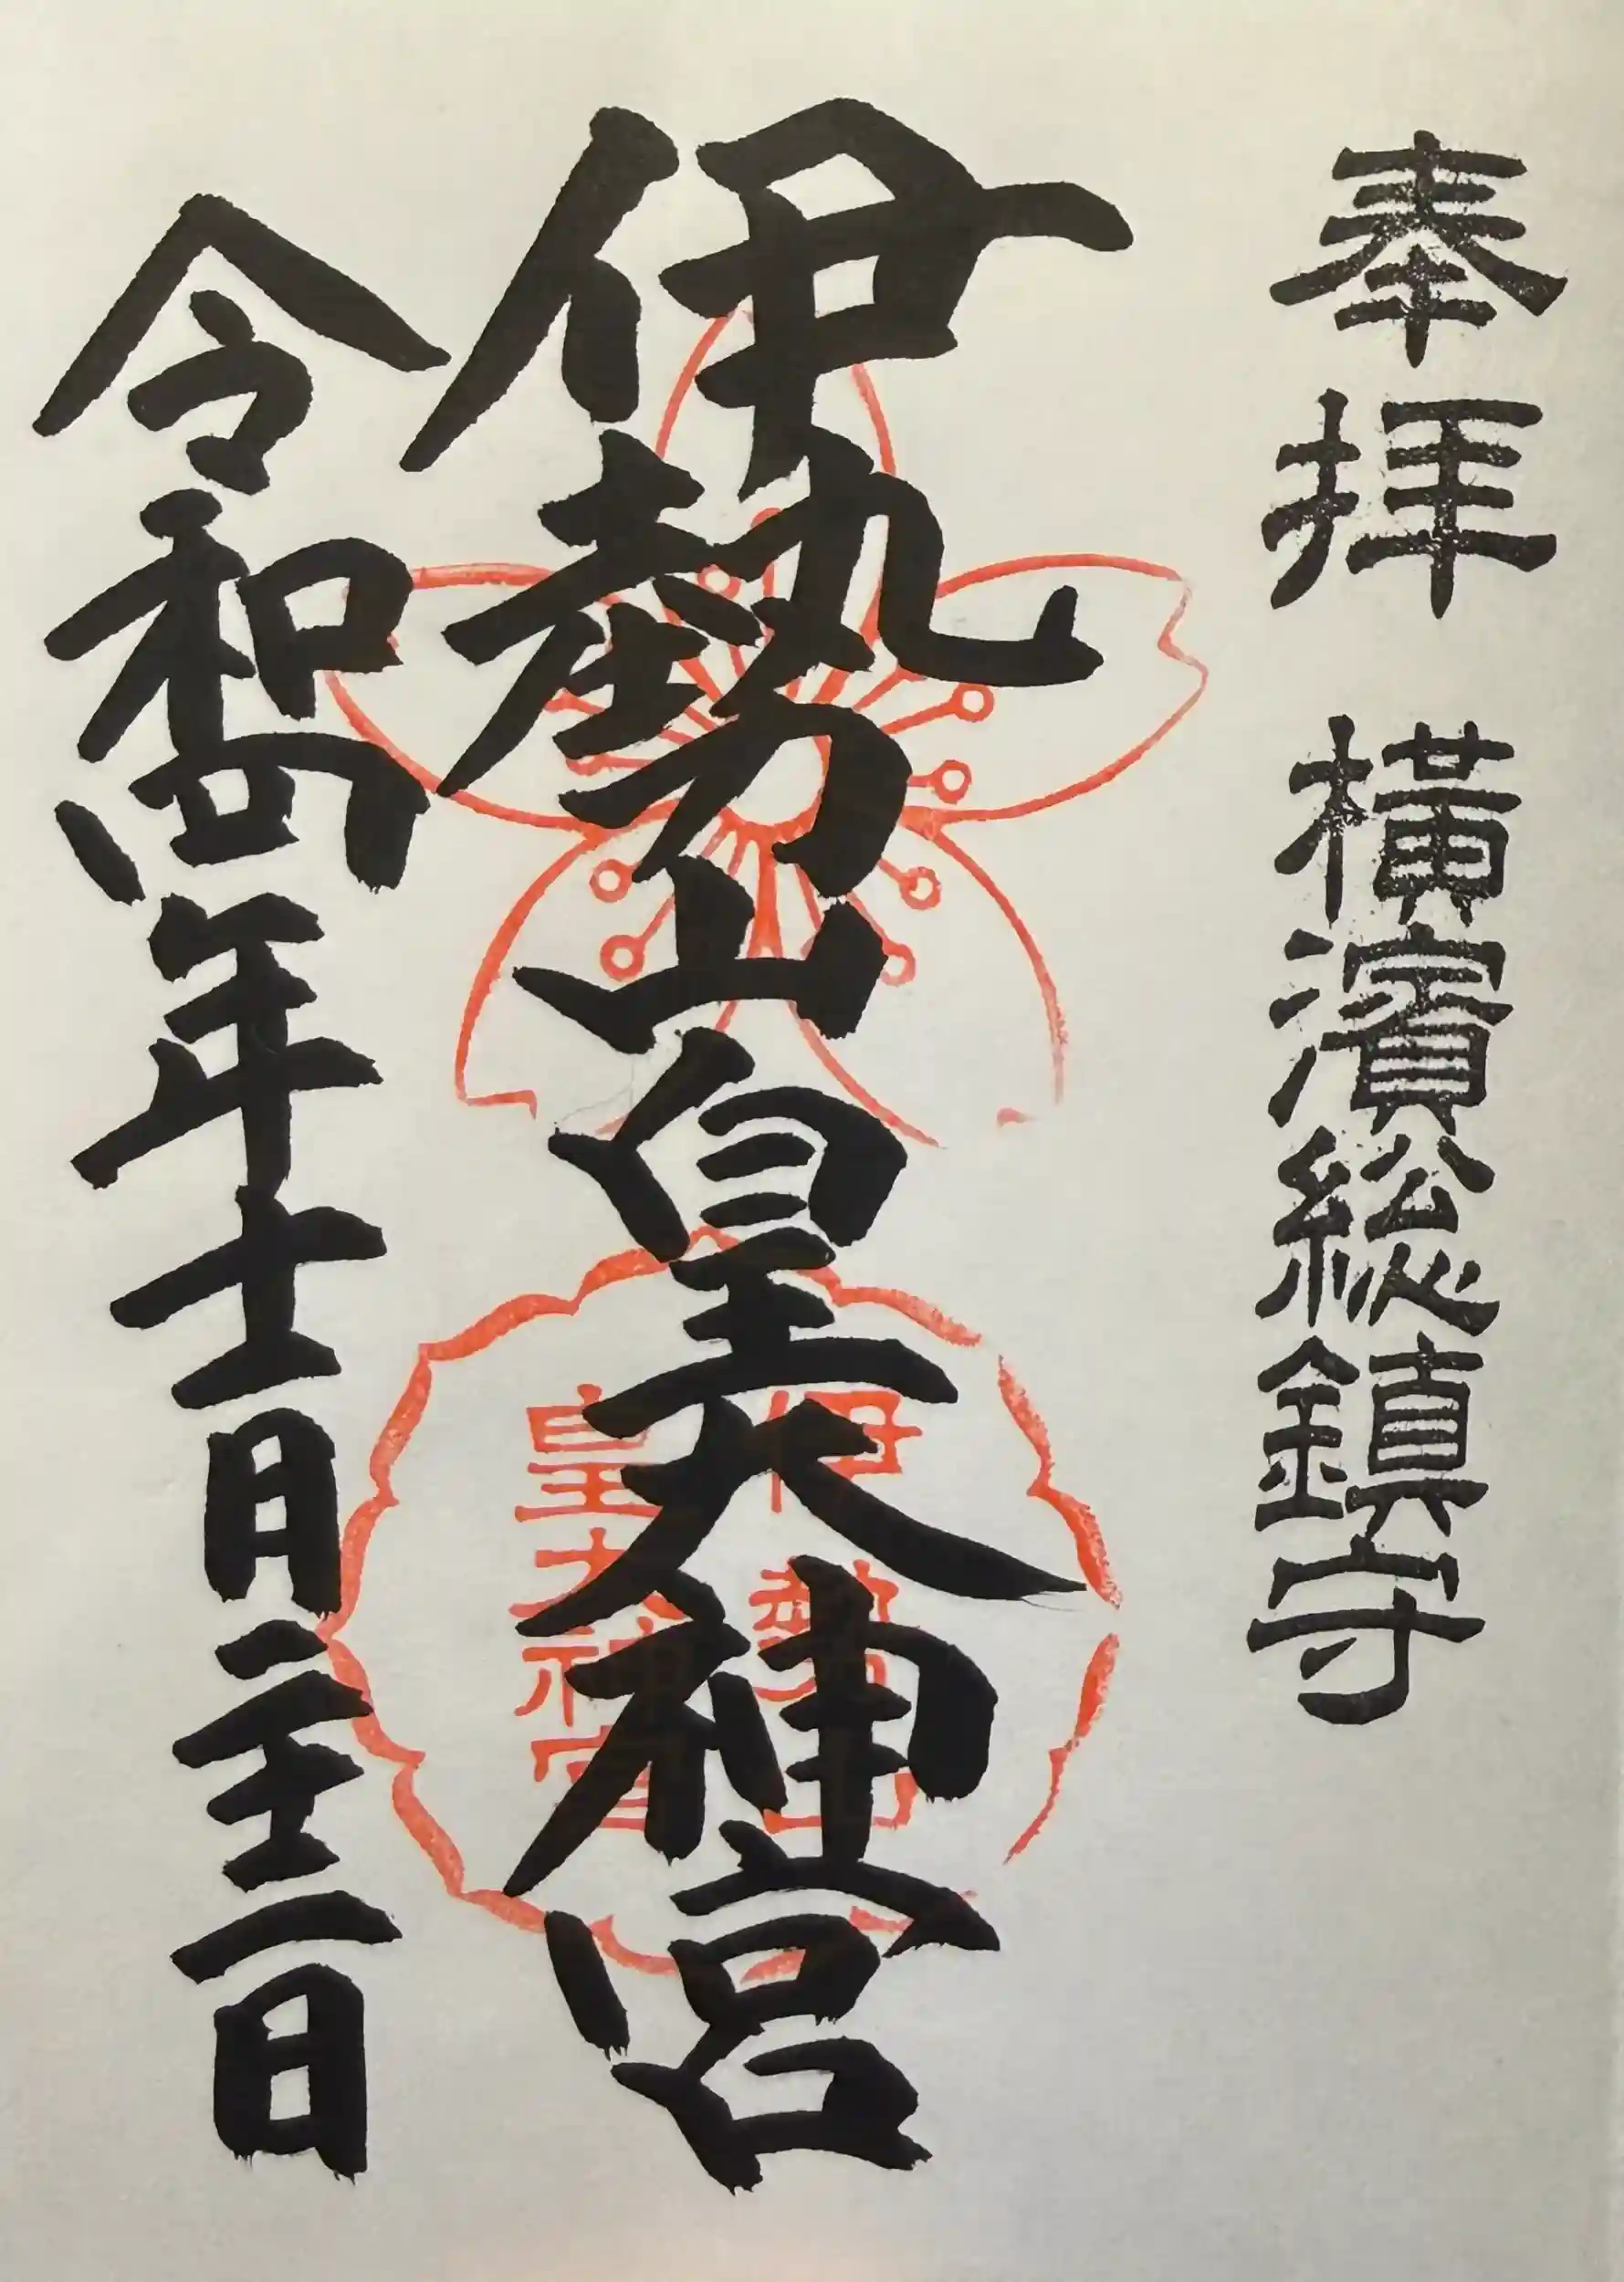 奉拝 横濱総鎮守
伊勢山皇大神宮
令和四年十一月二十二日
伊勢山
皇大神宮